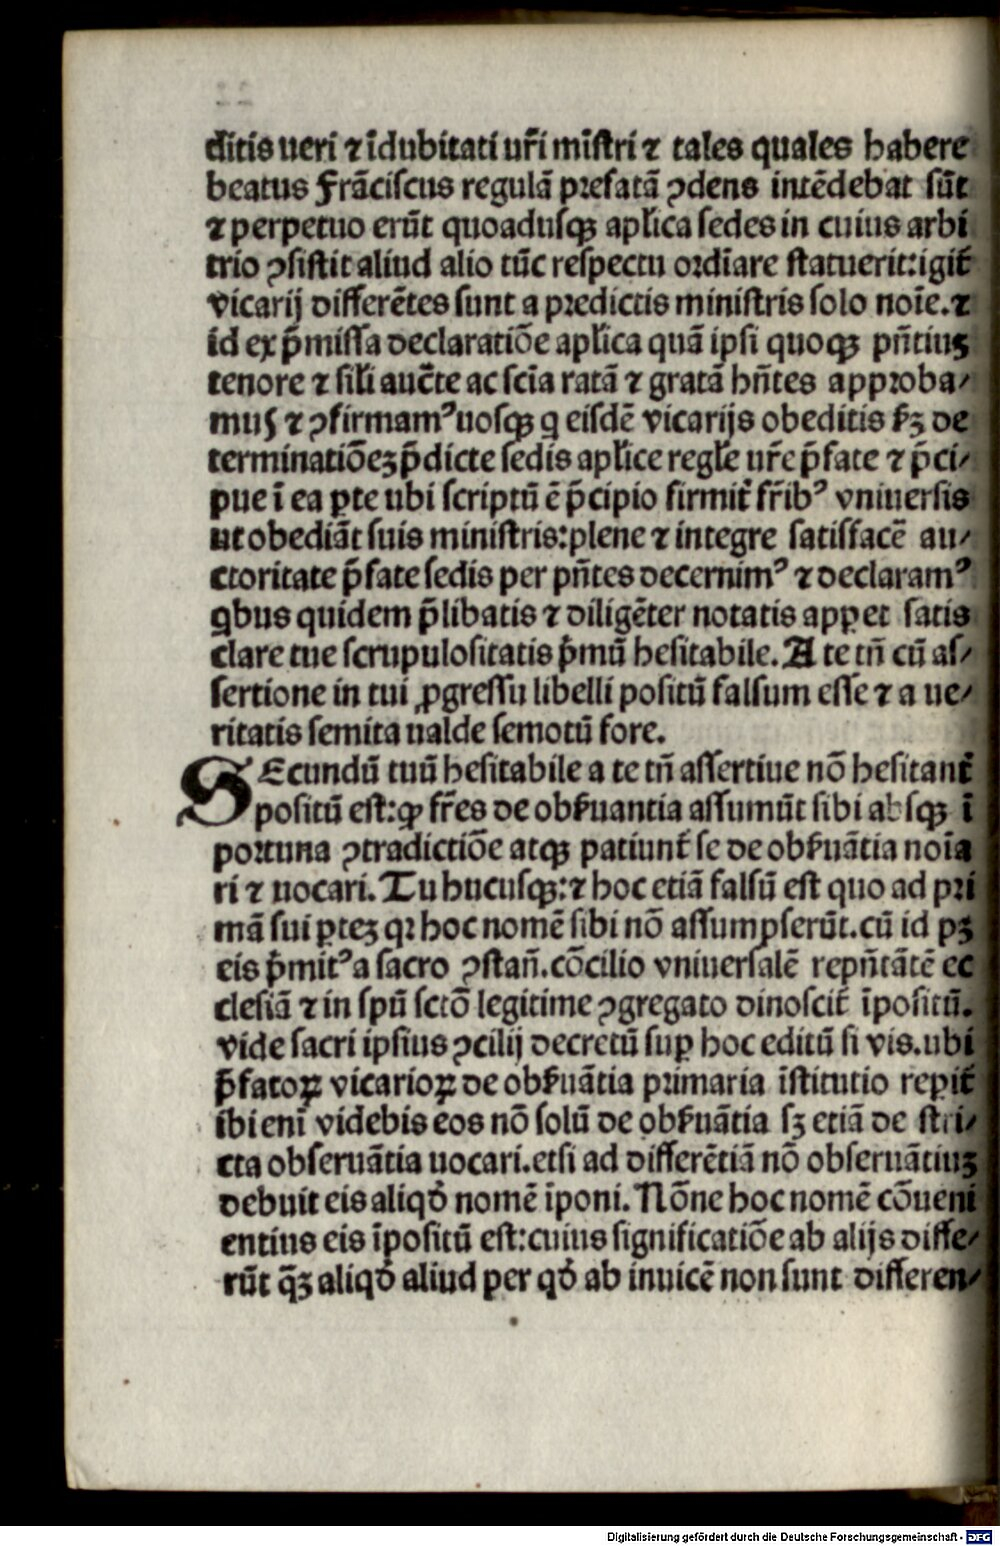 ditis ueri ⁊ īdubitati ur̄i mīstri ⁊ tales quales habere
beatus frāciscus regulā prefatā ꝯdens intēdebat sūt
⁊ perpetuo erūt quoadusqꝫ aplica sedes in cuius arbi
trio ꝯsistit aliud alio tūc respectu ordīare statuerit:igit̄
vicarij differētes sunt a predictis ministris solo noīe.⁊
id ex p̄missa declaratiōe aplica quā ipsi quoqꝫ pn̄tiuꝫ
tenore ⁊ sili auc̄te ac scīa ratā ⁊ gratā hn̄tes approba⸗
mus ⁊ ꝯfirmamꝰ uosqꝫ q eisdē vicarijs obeditis kꝫ de
terminatiōeꝫ p̄dicte sedis aplice regle ur̄e p̄fate ⁊ p̄ci⸗
pue ī ea ꝑte ubi scriptū ē p̄cipio firmit̄ fr̄ibꝰ vniuersis
ut obediāt suis ministris:plene ⁊ integre satisfacē au⸗
ctoritate p̄fate sedis per pn̄tes decernimꝰ ⁊ declaramꝰ
qbus quidem p̄libatis ⁊ diligēter notatis apꝑet satis
clare tue scrupulositatis p̄mū hesitabile. A te tn̄ cū as⸗
sertione in tui ꝓgressu libelli positū falsum esse ⁊ a ue⸗
ritatis semita ualde semotū fore.
SEcundū tuū hesitabile a te tn̄ assertiue nō hesitant̄
positū est:ꝙ fr̄es de obẜuantia assumūt sibi absqꝫ ī
portuna ꝯtradictiōe atqꝫ patiunt̄ se de obẜuātia noīa
ri ⁊ uocari. Tu hucusqꝫ:⁊ hoc etiā falsū est quo ad pri
mā sui ꝑteꝫ qꝛ hoc nomē sibi nō assumpserūt.cū id pꝫ
eis p̄mitꝰ a sacro ꝯstan̄.cōcilio vniuersalē repn̄tātē ec
clesiā ⁊ in spū sctō legitime ꝯgregato dinoscit̄ īpositū.
vide sacri ipsius ꝯcilij decretū suꝑ hoc editū si vis.ubi
p̄fatoꝝ vicarioꝝ de obẜuātia primaria īstitutio reꝑit̄
ibi enī videbis eos nō solū de obẜuātia sꝫ etiā de stri⸗
cta obseruātia uocari.etsi ad differētiā nō obseruātiuꝫ
debuit eis aliqđ nomē īponi. Nōne hoc nomē cōueni
entius eis īpositū est:cuius significatiōe ab alijs diffe⸗
rūt q̄ꝫ aliqđ aliud per qđ ab inuicē non sunt differen⸗
Digitalisierung gefördert durch die Deutsche Forschungsgemeinschaft - DFG